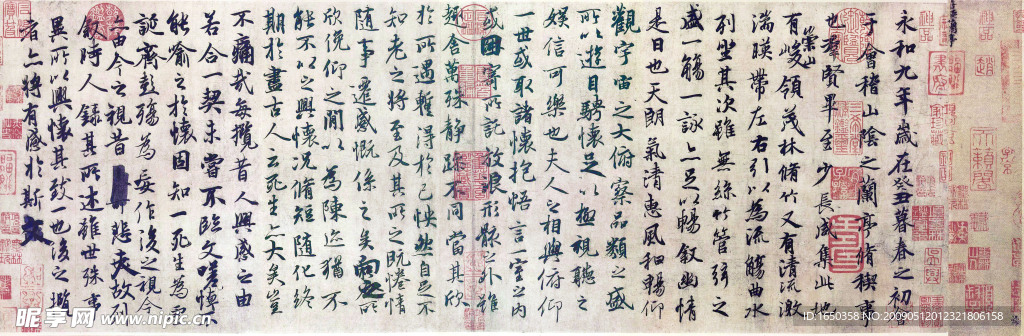 永和九年歲在癸丑暮春之初
于會稽山陰之蘭亭脩稧事
也羣賢畢至少長咸集此地
有崇山峻領茂林脩竹又有清流激
湍暎帶左右引以為流觴曲水
列坐其次雖無絲竹管弦之
盛一觴一詠亦足以暢敘幽情
是日也天朗氣清惠風和暢仰
觀宇宙之大俯察品類之盛
所以遊目騁懷足以極視聽之
娛信可樂也夫人之相與俯仰
一世或取諸懷抱悟言一室之內
或因寄所託放浪形骸之外雖
趣舍萬殊靜躁不同當其欣
於所遇暫得於己怏然自足不
知老之將至及其所之既惓情
隨事遷感慨係之矣向之所
欣俛仰之閒以為陳迹猶不
能不以之興懷況脩短隨化終
期於盡古人云死生亦大矣豈
不痛哉每攬昔人興感之由
若合一契未嘗不臨文嗟悼不
能喻之於懷固知一死生為虛
誕齊彭殤為妄作後之視今
亦由今之視昔悲夫故列
敘時人錄其所述雖世殊事
異所以興懷其致一也後之攬
者亦將有感於斯文
昵享网 www.nipic.cn
ID:1650358 NO:20090512012321806158